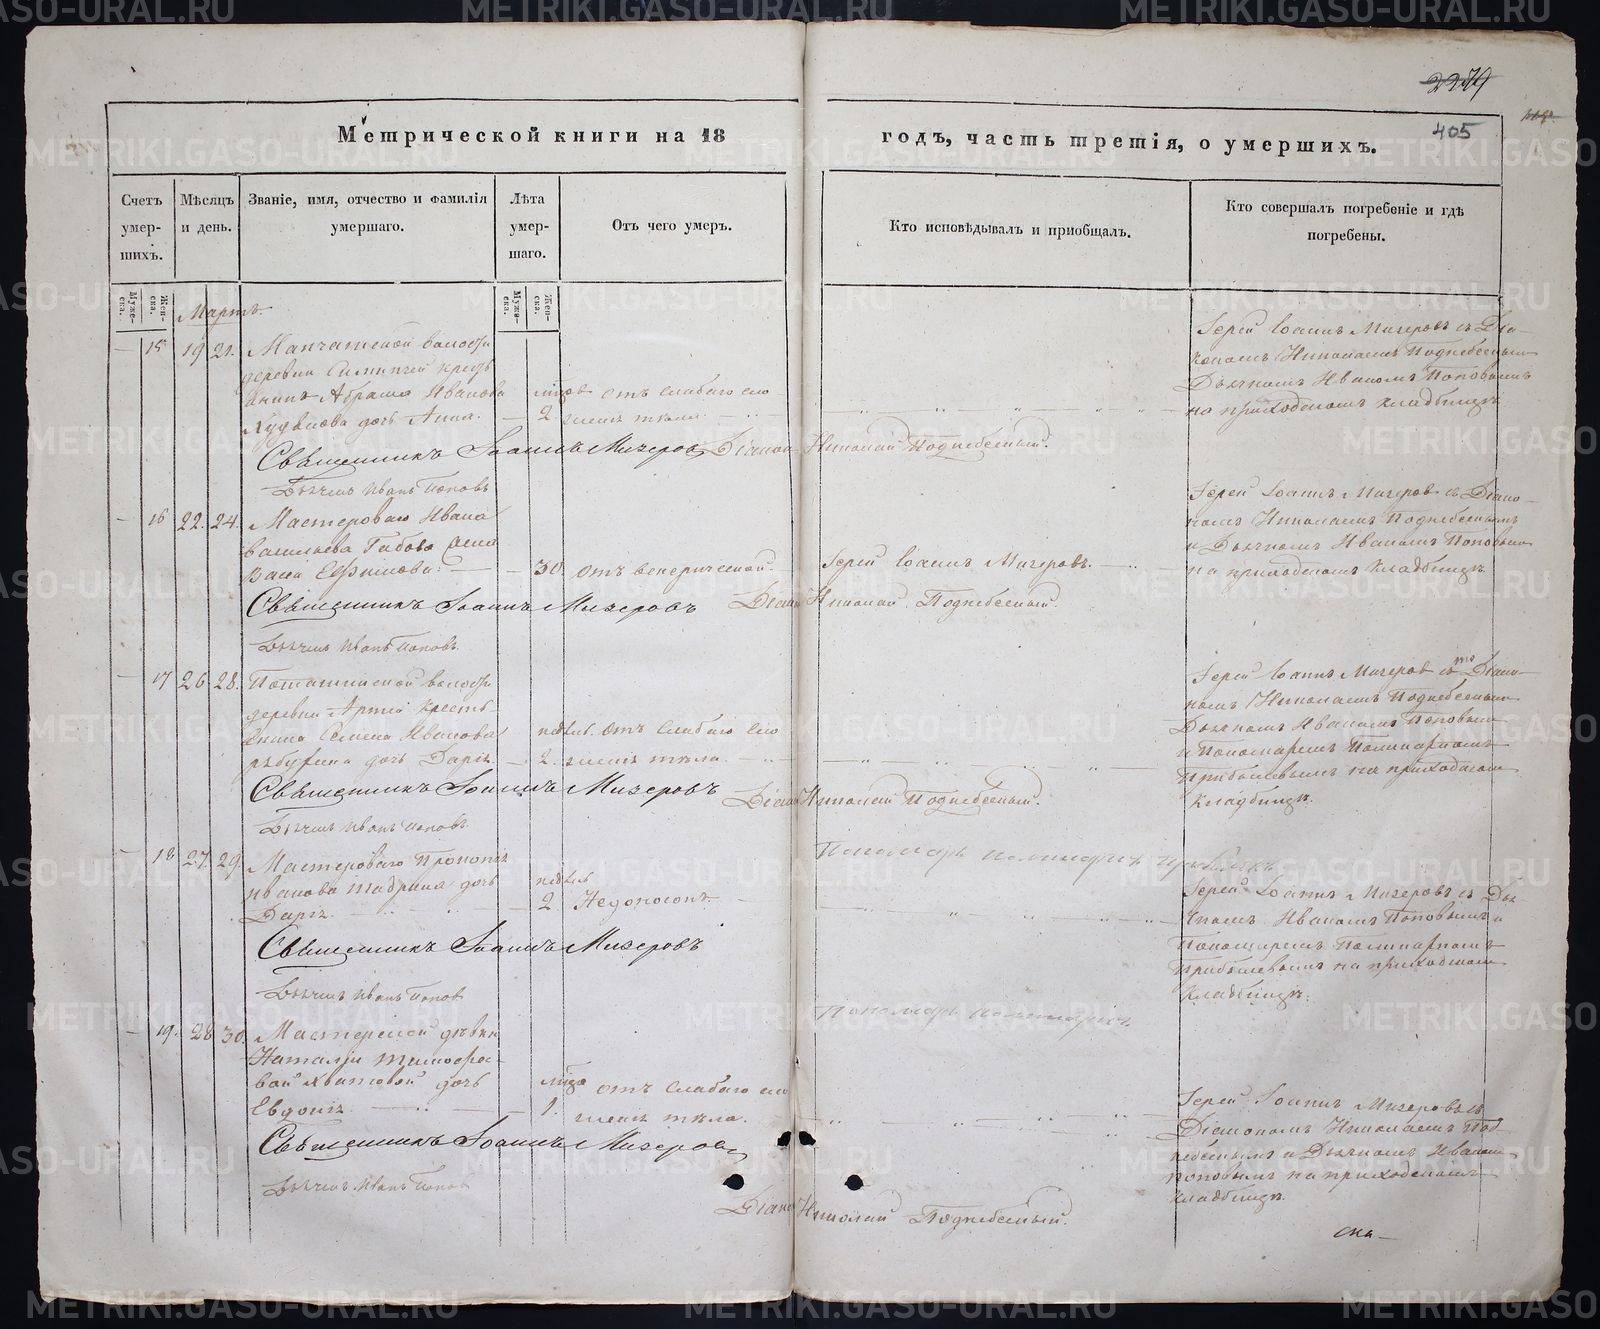 2279
405
Метрической книги на 18 годъ, часть третія, о умершихъ.
Счетъ умер-шихъ.
Мѣсяцъ и день.
Званіе, имя, отчество и фамилія умершаго.
Лѣта умер-шаго.
Отъ чего умеръ.
Кто исповѣдывалъ и пріобщалъ.
Кто совершалъ погребеніе и гдѣ погребены.
Муже-ска.
Жен-ска.
Муже-ска.
Жен-ска.
Мартъ
15 19 21.
деревни
Абрама Иванова
дочь Анна.
2
отъ слабаго сло
женія тѣла
Іерей Іоаннъ Мизеровъ съ Діа
кономъ Николаемъ Поднебеснымъ
Дьячкомъ Иваномъ Поповымъ
на приходскомъ кладбищѣ
Священникъ Іоаннъ Мизеровъ Діаконъ Николай Поднебесный.
Дьячекъ Иванъ Поповъ
16 22. 24.
Мастероваго Ивана
Васильева жена
Ефимова
30
отъ венерической.
Іерей Іоаннъ Мизеровъ.
Іерей Іоаннъ Мизеровъ съ Діако
номъ Николаемъ Поднебеснымъ
и Дьячкомъ Иваномъ Поповымъ
на приходскомъ кладбищѣ
Священникъ Іоаннъ Мизеровъ Діаконъ Николай Поднебесный.
Дьячекъ Иванъ Поповъ.
17 26 28.
Поташинской волости
деревни Артей кресть
янина Семена Иванова
дочь Дарія
недѣль
2.
отъ слабаго сло
женія тѣла.
Іерей Іоаннъ Мизеровъ съ Діако
номъ Николаемъ Поднебеснымъ
Дьячкомъ Иваномъ Поповымъ
и Пономаремъ Поликарпомъ
Прибылевымъ на приходскомъ
кладбищѣ.
Священникъ Іоаннъ Мизеровъ Діаконъ Николай Поднебесный.
Дьячекъ Иванъ Поповъ
18 27. 29.
Мастероваго Прокопія
Иванова дочь
Дарія
недѣль
2
Недоносокъ
Пономарь Поликарпъ
Іерей Іоаннъ Мизеровъ съ Дья
чкомъ Иваномъ Поповымъ и
Пономаремъ Поликарпомъ
Прибылевымъ на приходскомъ
кладбищѣ.
Священникъ Іоаннъ Мизеровъ
Дьячекъ Иванъ Поповъ
Пономарь Поликарпъ
19. 28 30.
Мастерской дѣвки
Наталіи Тимофее-
вой дочь
Евдокія
1.
отъ слабаго сло
женія тѣла.
Іерей Іоаннъ Мизеровъ съ
Діакономъ Николаемъ Под
небеснымъ и Дьячкомъ Иваномъ
Поповымъ на приходскомъ
кладбищѣ.
Священникъ Іоаннъ Мизеровъ
Дьячекъ Иванъ Поповъ
Діаконъ Николай Поднебесный.
METRIKI.GASO-URAL.RU